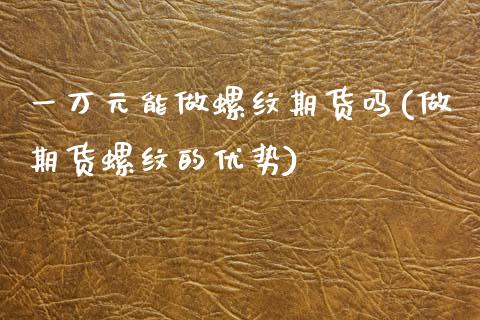 一万元能做螺纹期货吗(做
期货螺纹的优势)